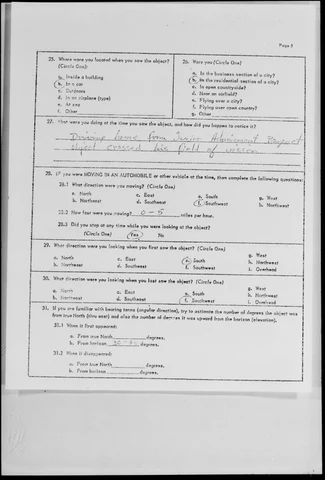 Page 3
25. Where were you located when you saw the object?
(Circle One):
a. Inside a building
b. In a car
c. Outdoors
d. In an airplane (type)
e. At sea
f. Other
26. Were you (Circle One)
a. In the business section of a city?
b. In the residential section of a city?
c. In open countryside?
d. Near an airfield?
e. Flying over a city?
f. Flying over open country?
g. Other
27. What were you doing at the time you saw the object, and how did you happen to notice it?
Driving home from Junior Achievement
object crossed his field of vision
28. IF you were MOVING IN AN AUTOMOBILE or other vehicle at the time, then complete the following questions:
28.1 What direction were you moving? (Circle One)
a. North c. East e. South g. West
b. Northeast d. Southeast f. Southwest h. Northwest
28.2 How fast were you moving? 0-5 miles per hour.
28.3 Did you stop at any time while you were looking at the object?
(Circle One) Yes No
29. What direction were you looking when you first saw the object? (Circle One)
a. North c. East e. South g. West
b. Northeast d. Southeast f. Southwest h. Northwest
i. Overhead
30. What direction were you looking when you last saw the object? (Circle One)
a. North c. East e. South g. West
b. Northeast d. Southeast f. Southwest h. Northwest
i. Overhead
31. If you are familiar with bearing terms (angular direction), try to estimate the number of degrees the object was
from true North (thru east) and also the number of degrees it was upward from the horizon (elevation).
31.1 When it first appeared:
a. From true North degrees.
b. From horizon degrees.
31.2 When it disappeared:
a. From true North degrees.
b. From horizon degrees.